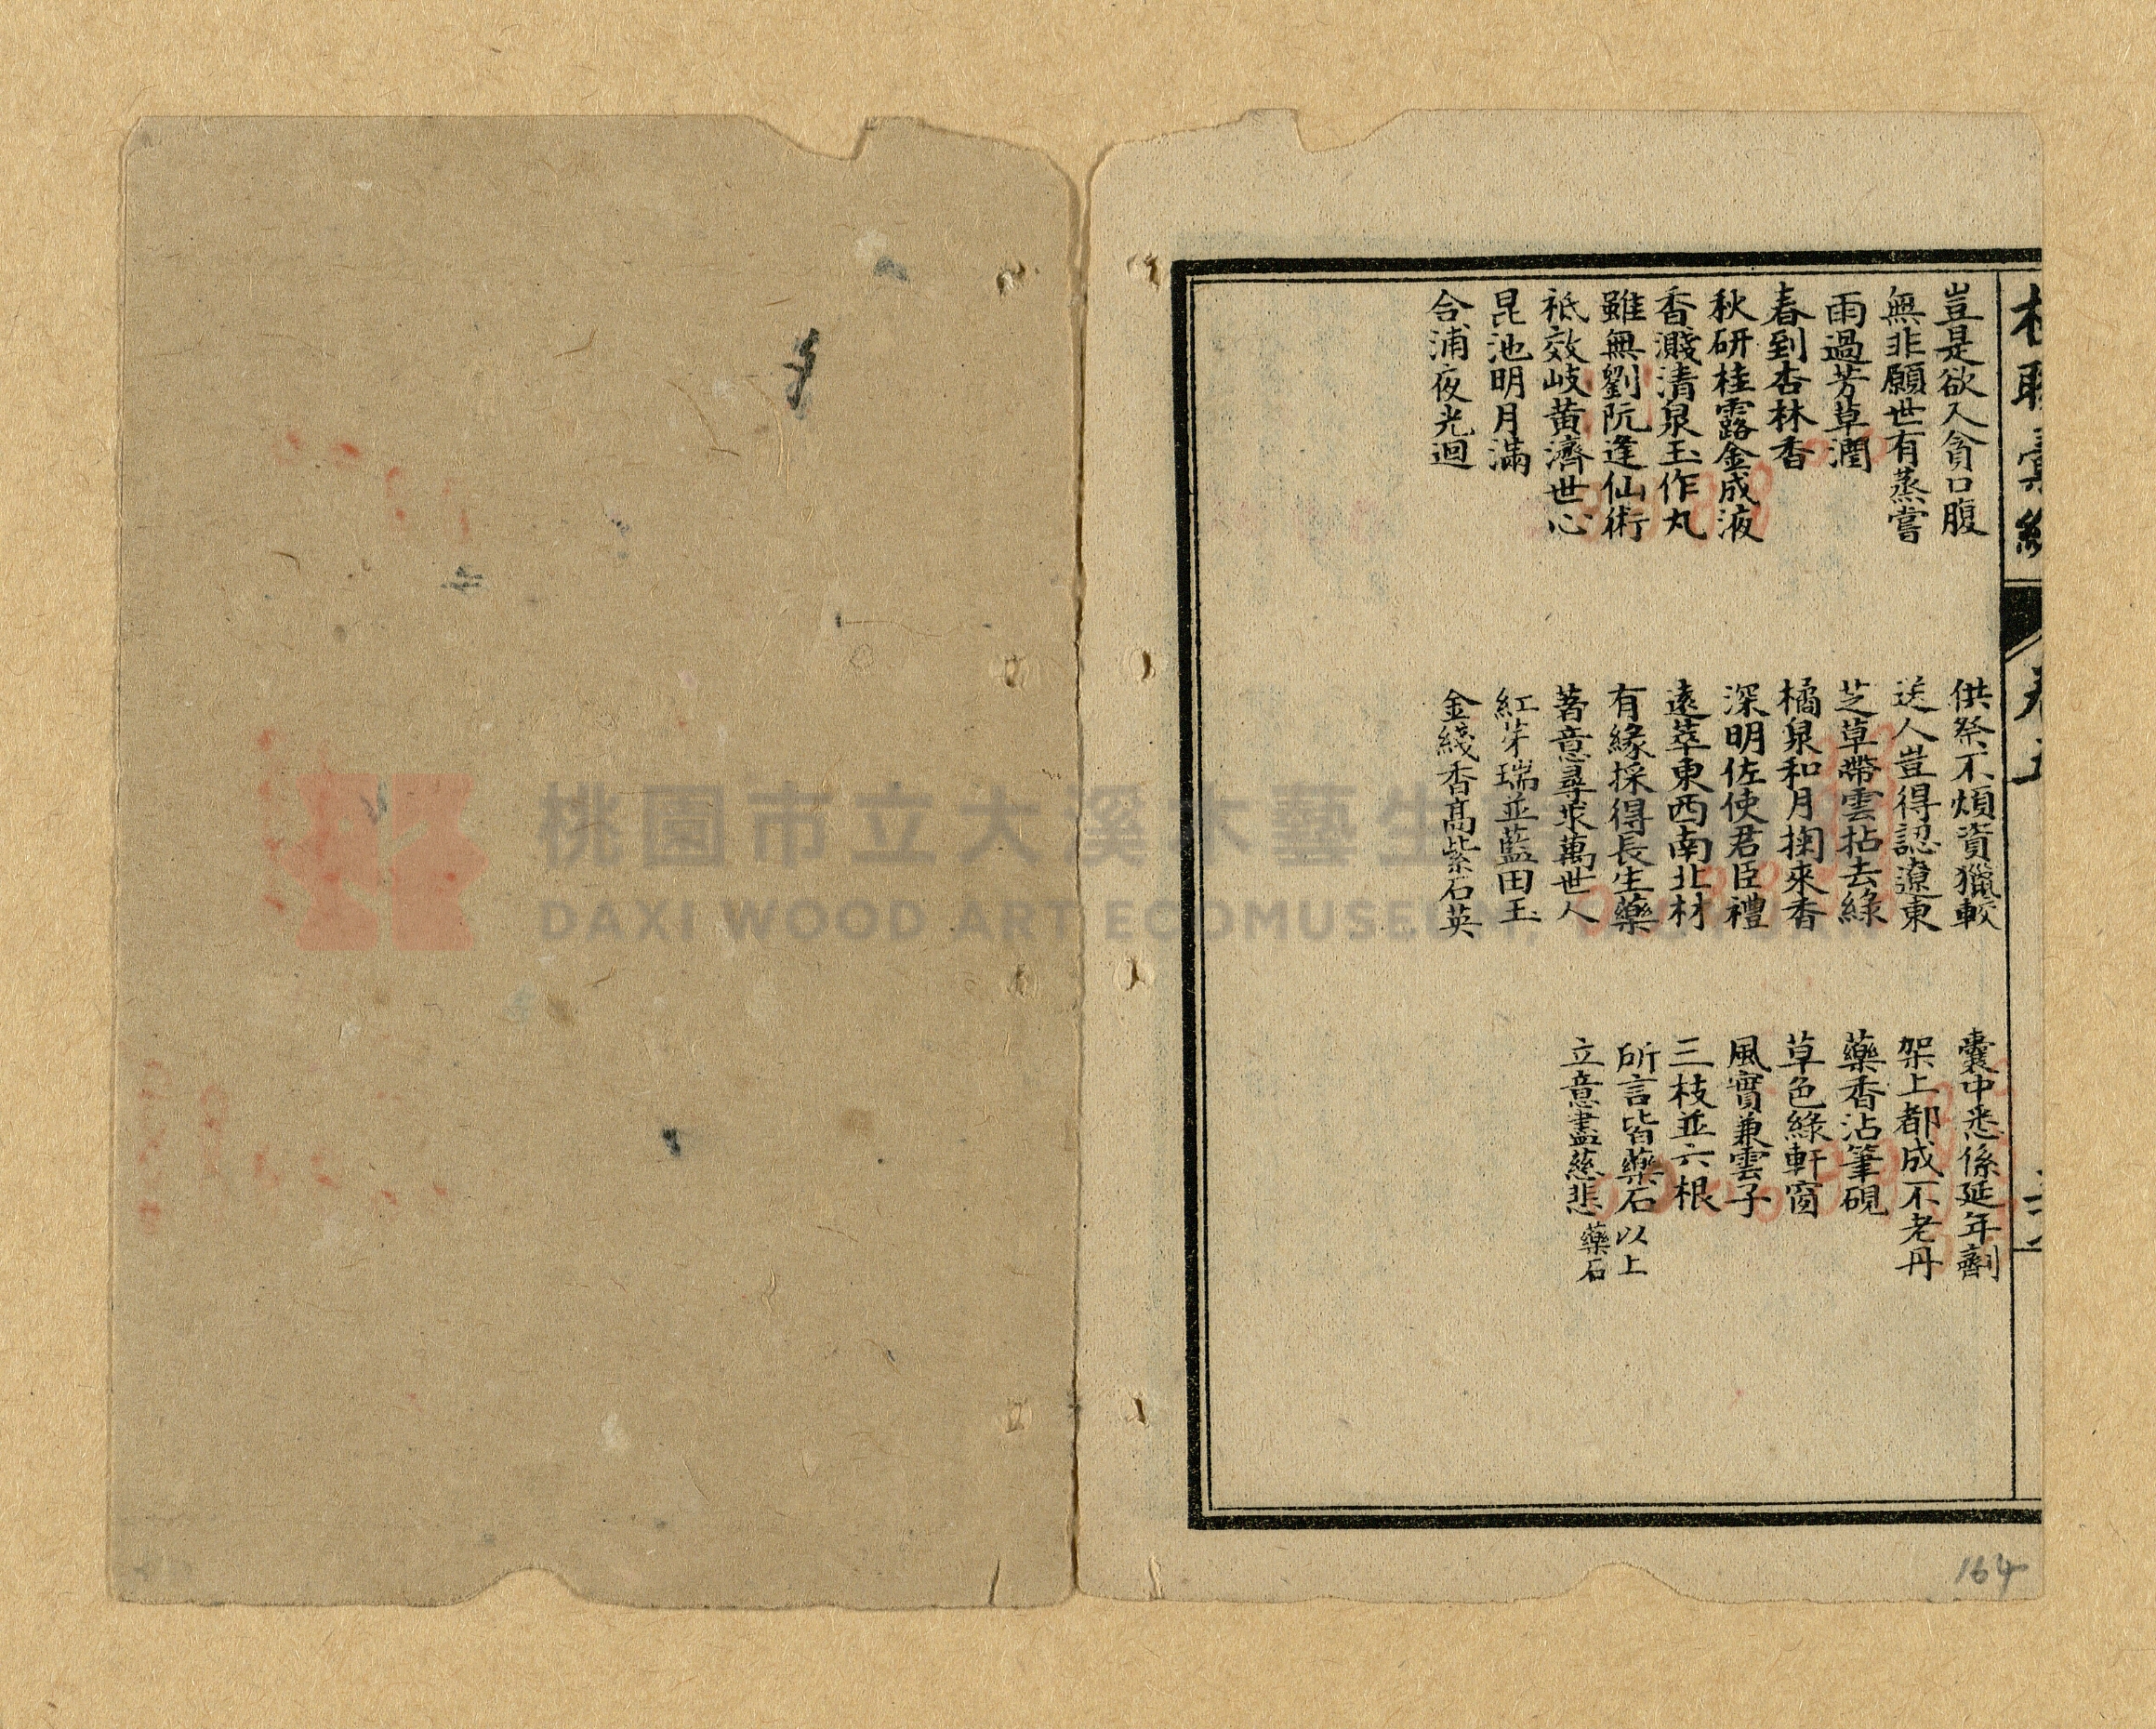 豈是欲入貪口腹
無非願世有蒸嘗
雨過芳草潤
春到杏林香
秋研桂露金成液
香濺清泉玉作丸
雖無劉阮逢仙術
祗效岐黃濟世心
昆池明月滿
合浦夜光迴
供祭不煩資獵較
送人豈得認遼東
芝草帶雲拈去綠
橘泉和月掬來香
深明佐使君臣禮
遠萃東西南北材
有緣採得長生藥
著意尋求萬世人
紅芽瑞並藍田玉
金綫香高紫石英
囊中悉係延年劑
架上都成不老丹
藥香沾筆硯
草色綠軒窗
風實兼雲子
三枝並六根
所言皆藥石 以上
立意盡慈悲 藥石
164
桃園市立大溪木藝生
DAXI WOOD ART ECOMUSEUM, TAOYUAN